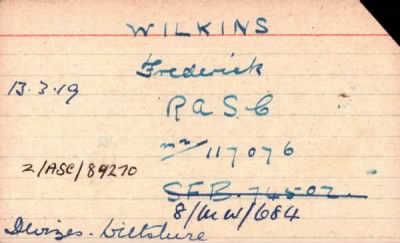 WILKINS
Frederick
13.3.19
R A S C
M2/117076
2/ASC/89270
SFB. 74502.
8/MW/684
Devizes. Wiltshire